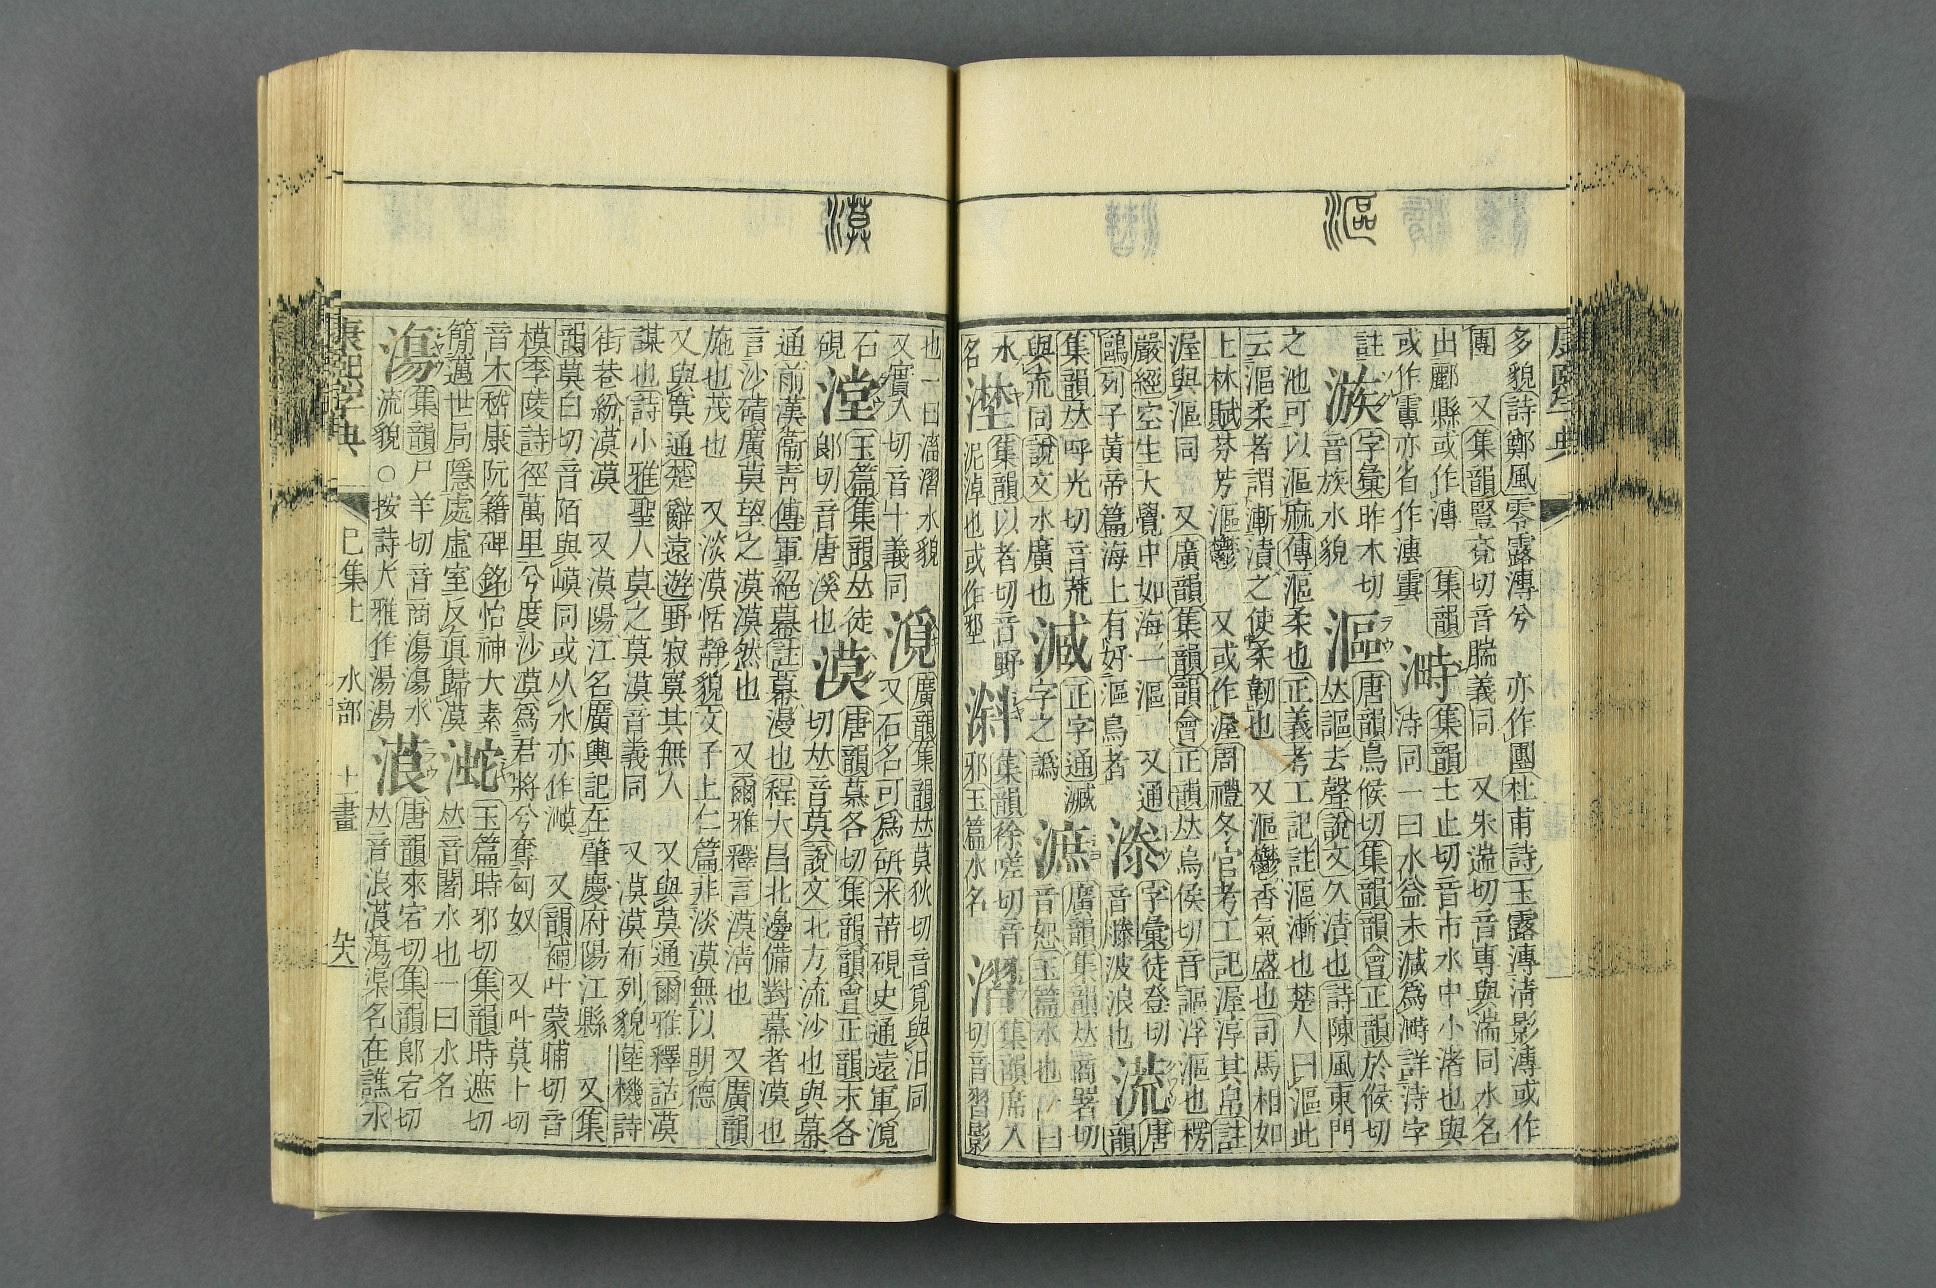 漚
康熙字典
多貌詩鄭風零露漙兮 亦作團杜甫詩玉露漙淸影漙或作
團 又集韻豎兗切音腨義同 又朱遄切音專與湍同水名
出酈縣或作漙 集韻 溡 集韻士止切音市水中小渚也與
或作霔亦省作 洔同一曰水益未減爲溡詳洔字
註 字彙昨木切 漚 唐韻烏候切集韻韻會正韻於候切
音族水貌 丛謳去聲說文久漬也詩陳風東門
之池可以漚麻傳漚柔也正義考工記註漚漸也楚人曰漚此
云漚柔者謂漸漬之使柔韌也 又漚鬱香氣盛也司馬相如
上林賦芬芳漚鬱 又或作渥周禮冬官考工記渥淳其帛註
渥與漚同 又廣韻集韻韻會正韻丛烏侯切音謳浮漚也楞
嚴經空生大覺中如海一漚 又通 漛 字彙徒登切 㵃 唐
鷗列子黃帝篇海上有好漚鳥者 音滕波浪也 韻
集韻丛呼光切音荒 正字通 㵂 廣韻集韻丛商署切
與㡃同說文水廣也 字之譌 音恕玉篇水也一曰
水 漜 集韻以者切音野 㴨 集韻徐嗟切音 漝 集韻席入
名 泥淖也或作埜 邪玉篇水名 切音習影
漠
也一曰漝漝水貌 漞 廣韻集韻丛莫狄切音覓與汨同
又實入切音十義同 又石名可爲硏米芾硯史通遠軍漞
石 漟 玉篇集韻丛徒 漠 唐韻慕各切集韻韻會正韻末各
硯 郎切音唐溪也 切丛音莫說文北方流沙也與幕
通前漢衞靑傳軍絕幕註幕漫也程大昌北邊備對幕者漠也
言沙磧廣莫望之漠漠然也 又爾雅釋言漠淸也 又廣韻
施也茂也 又淡漠恬靜貌文子上仁篇非淡漠無以明德
又與寞通楚辭遠遊野寂寞其無人 又與莫通爾雅釋詁漠
謀也詩小雅聖人莫之莫漠音義同 又漠漠布列貌陸機詩
街巷紛漠漠 又漠陽江名廣輿記在肇慶府陽江縣 又集
韻莫白切音陌與嗼同或从水亦作漠 又韻補叶蒙晡切音
模李陵詩徑萬里兮度沙漠爲君將兮奮匈奴 又叶莫卜切
音木嵇康阮籍碑銘怡神大素 玉篇時邪切集韻時遮切
簡邁世局隱處虛室反眞歸漠 丛音闍水也一曰水名
㵝 集韻尸羊切音商㵝㵝水 㵧 唐韻來宕切集韻郎宕切
流貌○按詩大雅作湯湯 丛音浪㵧蕩渠名在譙水
康熙字典 巳集上 水部 十一畫